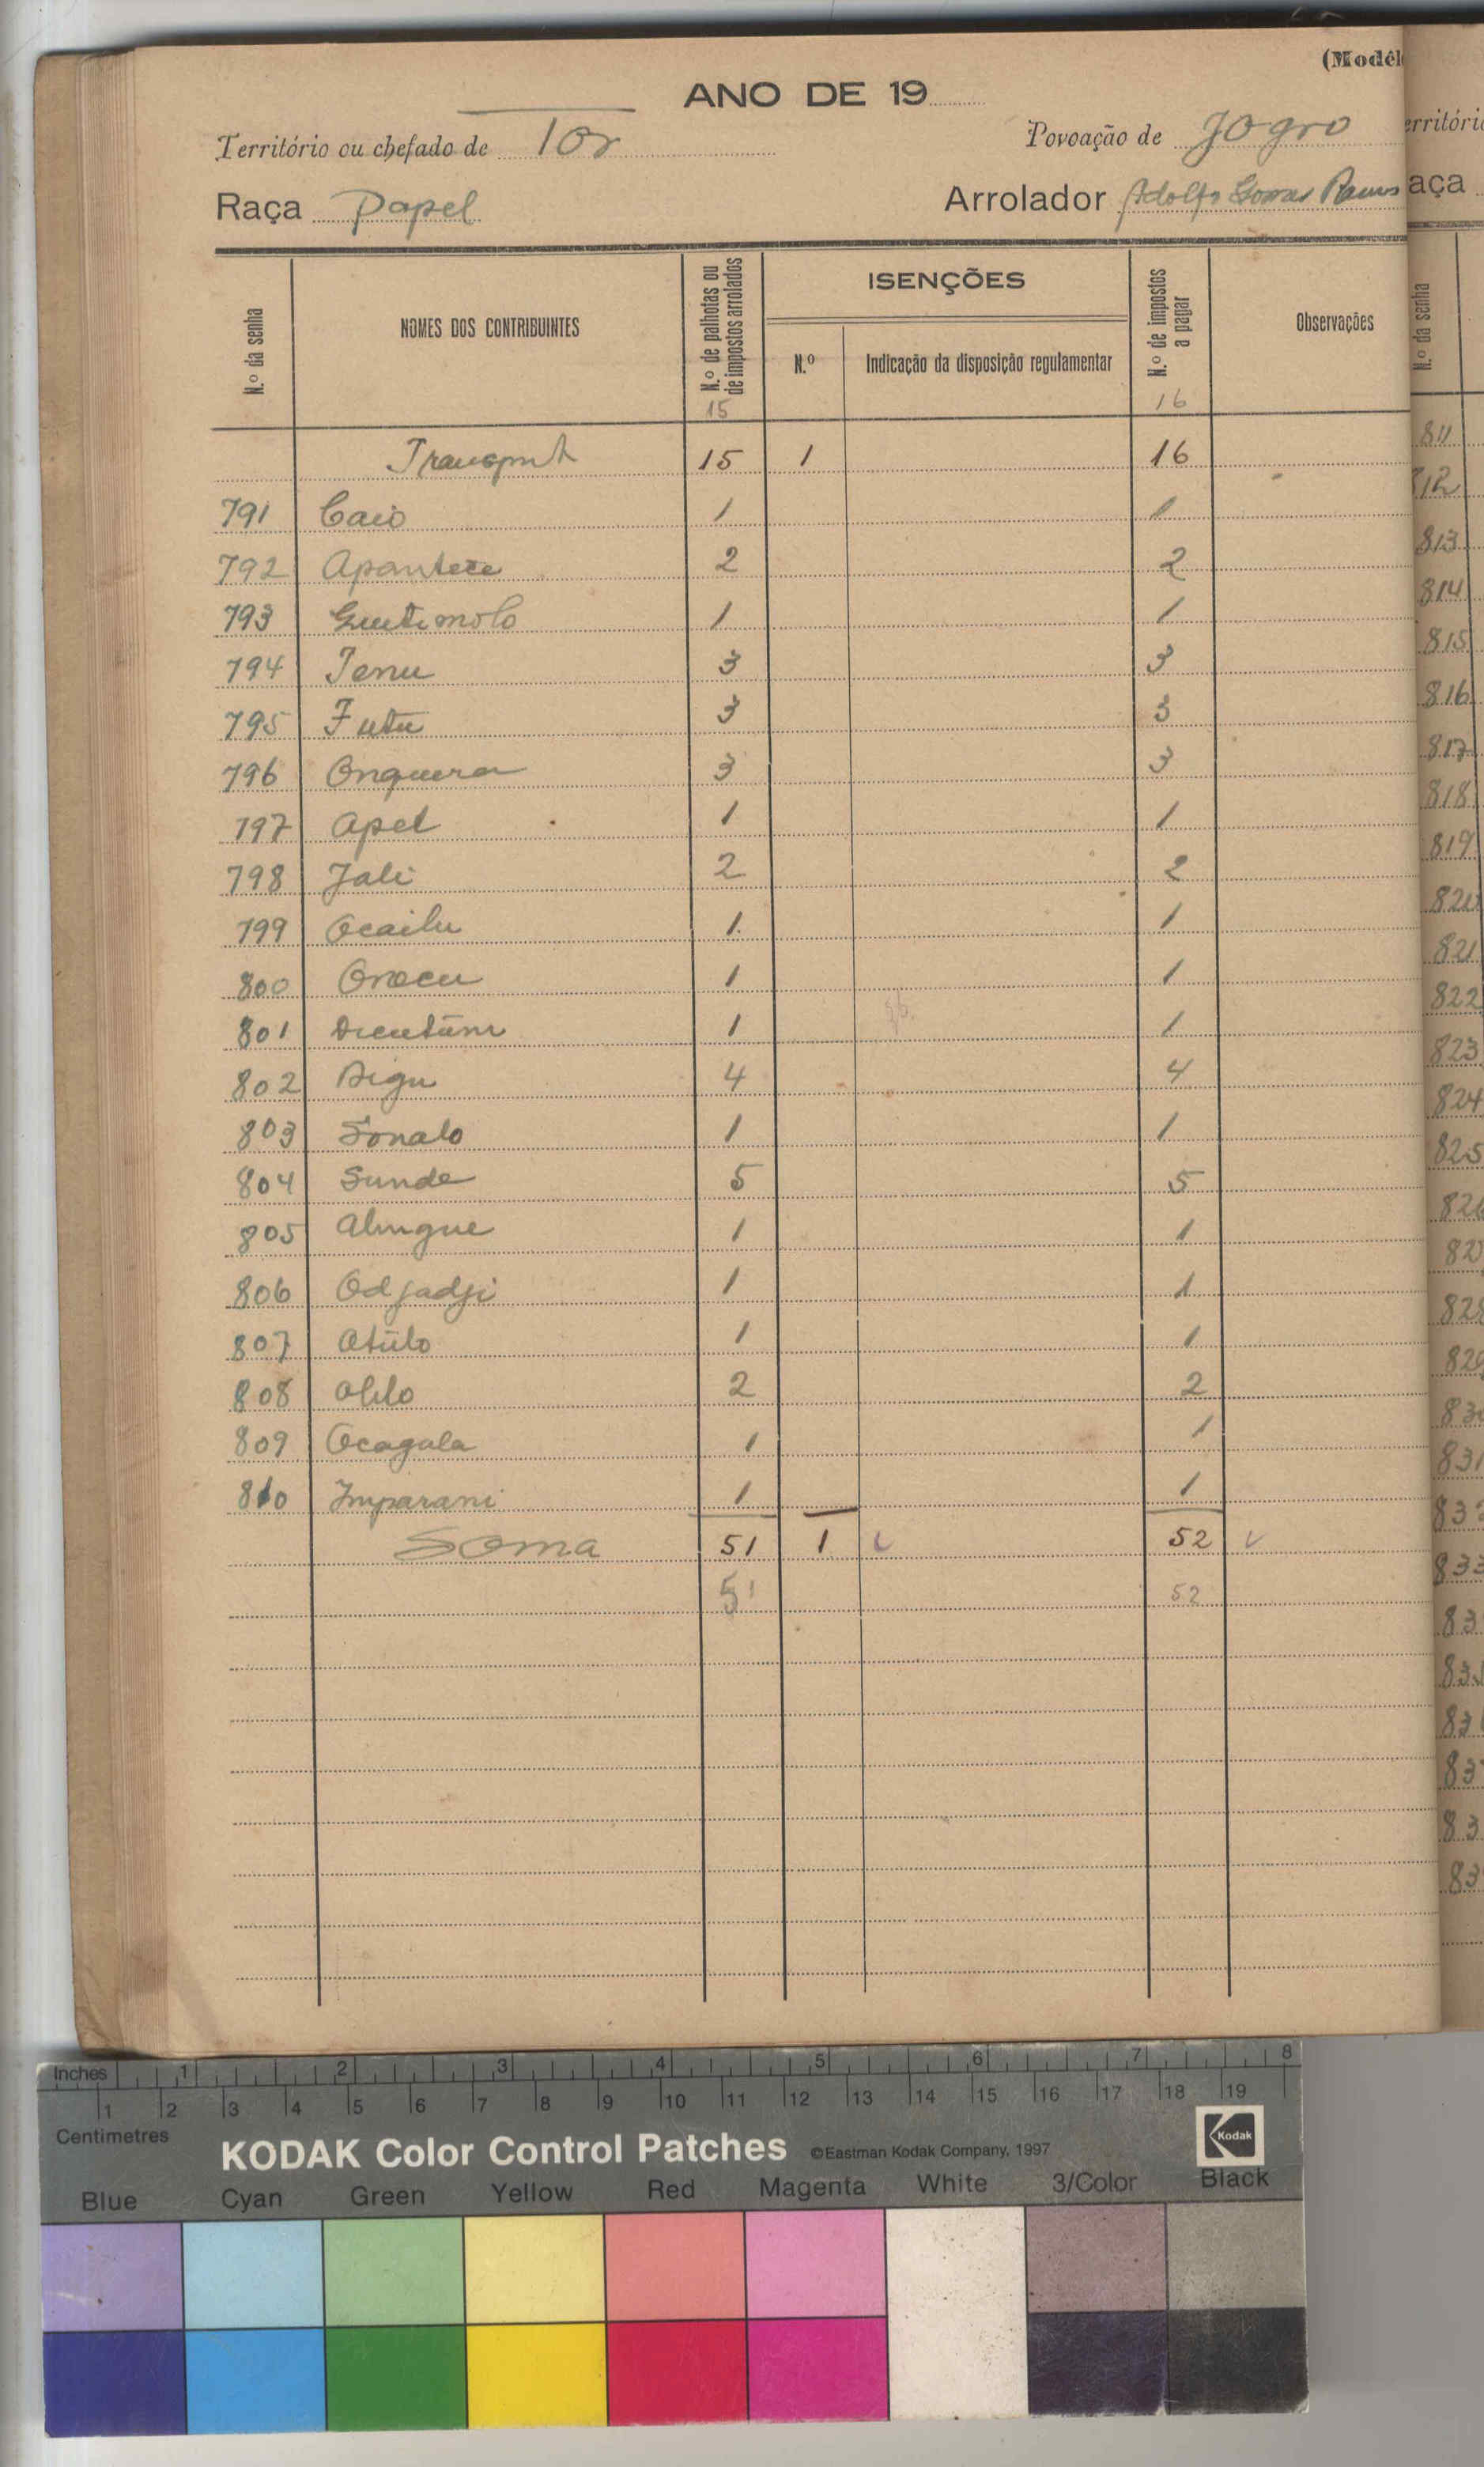 (Modêl
ANO DE 19
Território ou chefado de Tor Povoação de Jogro
Raça Papel Arrolador Adolfo Gomes Ramos
N.º da senha NOMES DOS CONTRIBUINTES N.º de palhotas ou de impostos arrolados ISENÇÕES N.º Indicação da disposição regulamentar N.º de impostos a pagar Observações
15 16
Transport 15 1 16
791 Caio 1 1
792 Apantece 2 2
793 1 1
794 Tenu 3 3
795 Futu 3 3
796 Onquera 3 3
797 Apel 1 1
798 Jali 2 2
799 Ocailu 1 1
800 Onocu 1 1
801 1 1
802 Bigu 4 4
803 Sonalo 1 1
804 Sunde 5 5
805 Alingue 1 1
806 Odjadji 1 1
807 Otúlo 1 1
808 2 2
809 Ocagala 1 1
810 Imparani 1 1
Soma 51 1 52
51 52
erritóri
aça
N.º da senha
811
812
813
814
815
816
817
818
819
820
821
822
823
824
825
Inches 1 2 3 4 5 6 7 8
1 2 3 4 5 6 7 8 9 10 11 12 13 14 15 16 17 18 19
Centimetres
KODAK Color Control Patches ©Eastman Kodak Company, 1997 Kodak
Blue Cyan Green Yellow Red Magenta White 3/Color Black